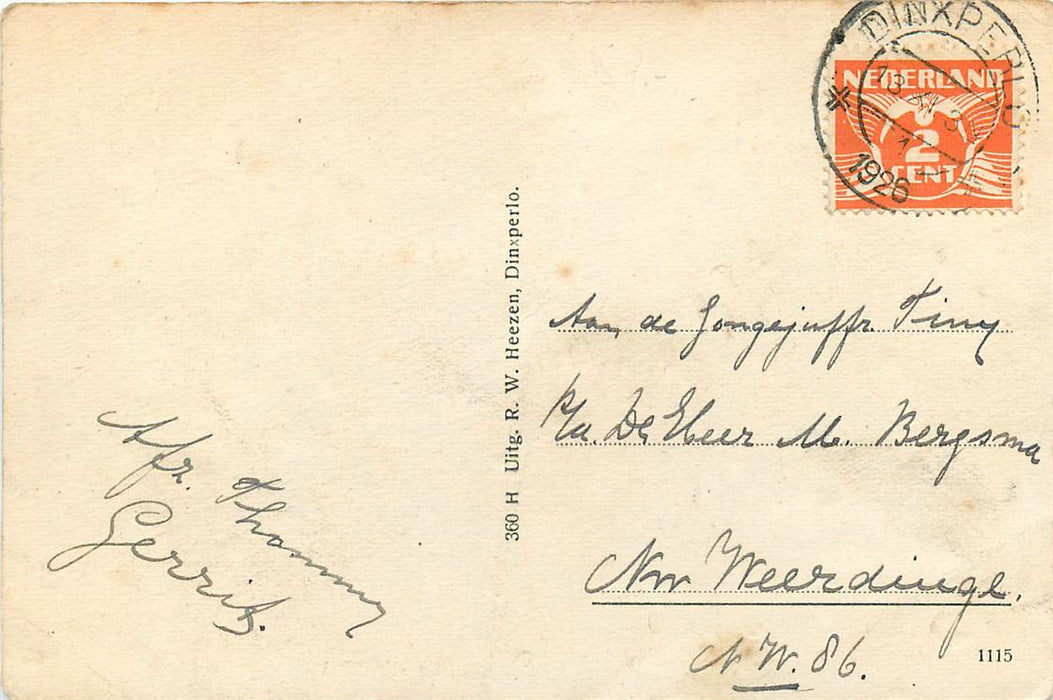 DINXPERLO
NEDERLAND
2
CENT
1926
Aan de Jongejuffr. Tiny
P/a. De Heer M. Bergsma
Nw Weerdinge.
N W. 86.
1115
360 H Uitg. R. W. Heezen, Dinxperlo.
Afz. Thommy
Gerrits.